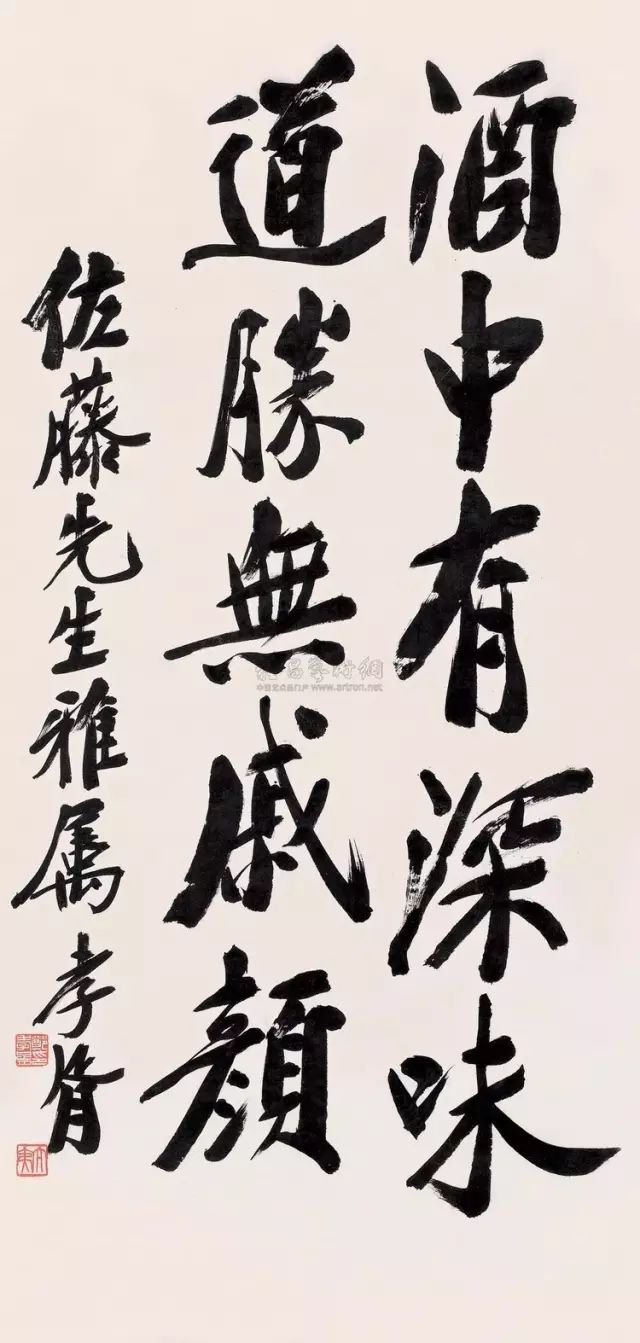 酒中有深味
道勝無戚顏
佐藤先生雅属 孝胥
www.artron.net